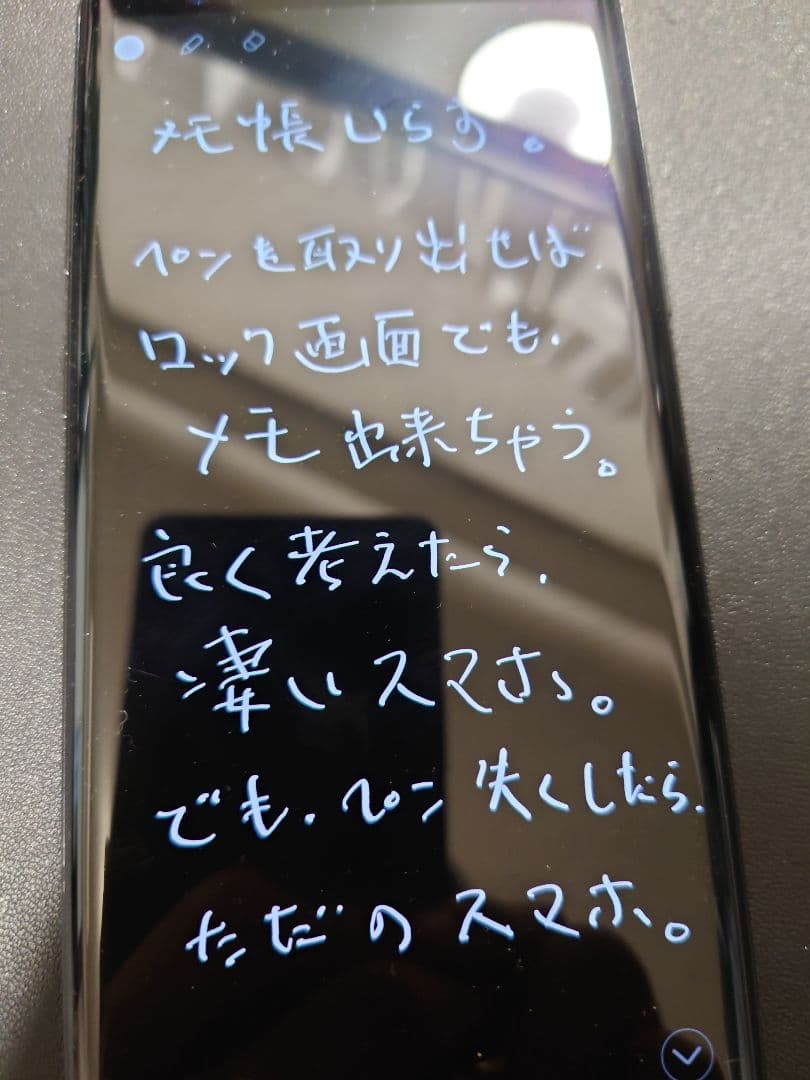 メモ帳いらす。
ペンを取り出せば、
ロック画面でも、
メモ出来ちゃう。
良く考えたら、
凄いスマホ。
でも、ペン失くしたら、
ただのスマホ。